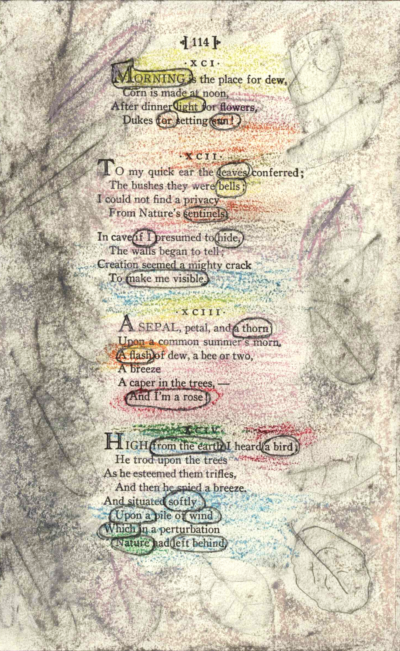 [ 114 ]
· XCI ·
MORNING is the place for dew,
Corn is made at noon,
After dinner light for flowers,
Dukes for setting sun!
· XCII ·
TO my quick ear the leaves conferred;
The bushes they were bells;
I could not find a privacy
From Nature's sentinels.
In cave if I presumed to hide,
The walls began to tell;
Creation seemed a mighty crack
To make me visible.
· XCIII ·
A SEPAL, petal, and a thorn
Upon a common summer's morn,
A flash of dew, a bee or two,
A breeze
A caper in the trees, —
And I'm a rose!
· XCIV ·
HIGH from the earth I heard a bird;
He trod upon the trees
As he esteemed them trifles,
And then he spied a breeze,
And situated softly
Upon a pile of wind
Which in a perturbation
Nature had left behind.